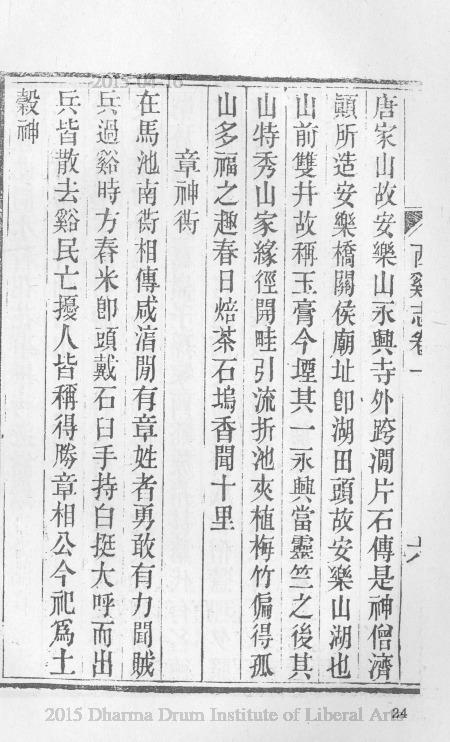 2015-04-16
唐家山故安樂山永興寺外跨澗片石傳是神僧濟
顚所造安樂橋關侯廟址卽湖田頭故安樂山湖也
山前雙井故稱玉膏今堙其一永興當靈竺之後其
山特秀山家緣徑開畦引流折池夾植梅竹偏得孤
山多福之趣春日焙茶石塢香聞十里
章神衖
在馬池南衖相傳咸淯閒有章姓者勇敢有力聞賊
兵過谿時方舂米卽頭戴石臼手持白挺大呼而出
兵皆散去谿民亡擾人皆稱得勝章相公今祀爲土
穀神
西谿志卷一
24
2015 Dharma Drum Institute of Liberal Arts